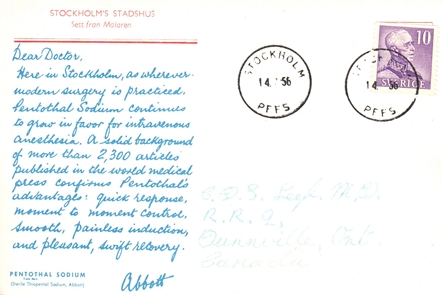 STOCKHOLM'S STADSHUS
Sett från Mälaren
Dear Doctor,
Here in Stockholm, as wherever
modern surgery is practiced,
Pentothal Sodium continues
to grow in favor for intravenous
anesthesia. A solid background
of more than 2,300 articles
published in the world medical
press confirms Pentothal's
advantages: quick response,
moment to moment control,
smooth, painless induction,
and pleasant, swift recovery.
Abbott
PENTOTHAL SODIUM
(Sterile Thiopental Sodium, Abbott)
STOCKHOLM
14 56
PFFS
14 56
PFFS
10
SVERIGE
M.D.
R.R. 2,
Dunnville, Ont.
Canada